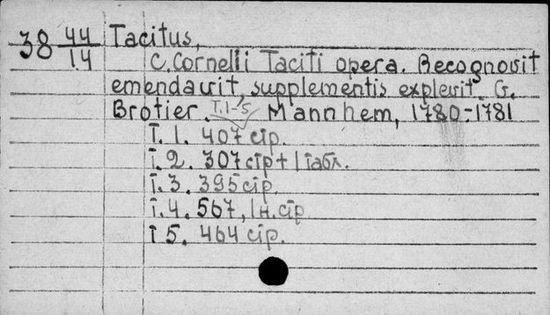 38 44/14 Tacitus,
C. Cornelii Taciti opera. Recognovit
emendavit, supplementis explevit. G.
Brotier. T.1-5 Mannhem, 1780-1781
Т. 1. 407 стр.
Т. 2. 307 стр + 1 табл.
Т. 3. 395 стр.
Т. 4. 567, 1 н. стр
Т 5. 464 стр.